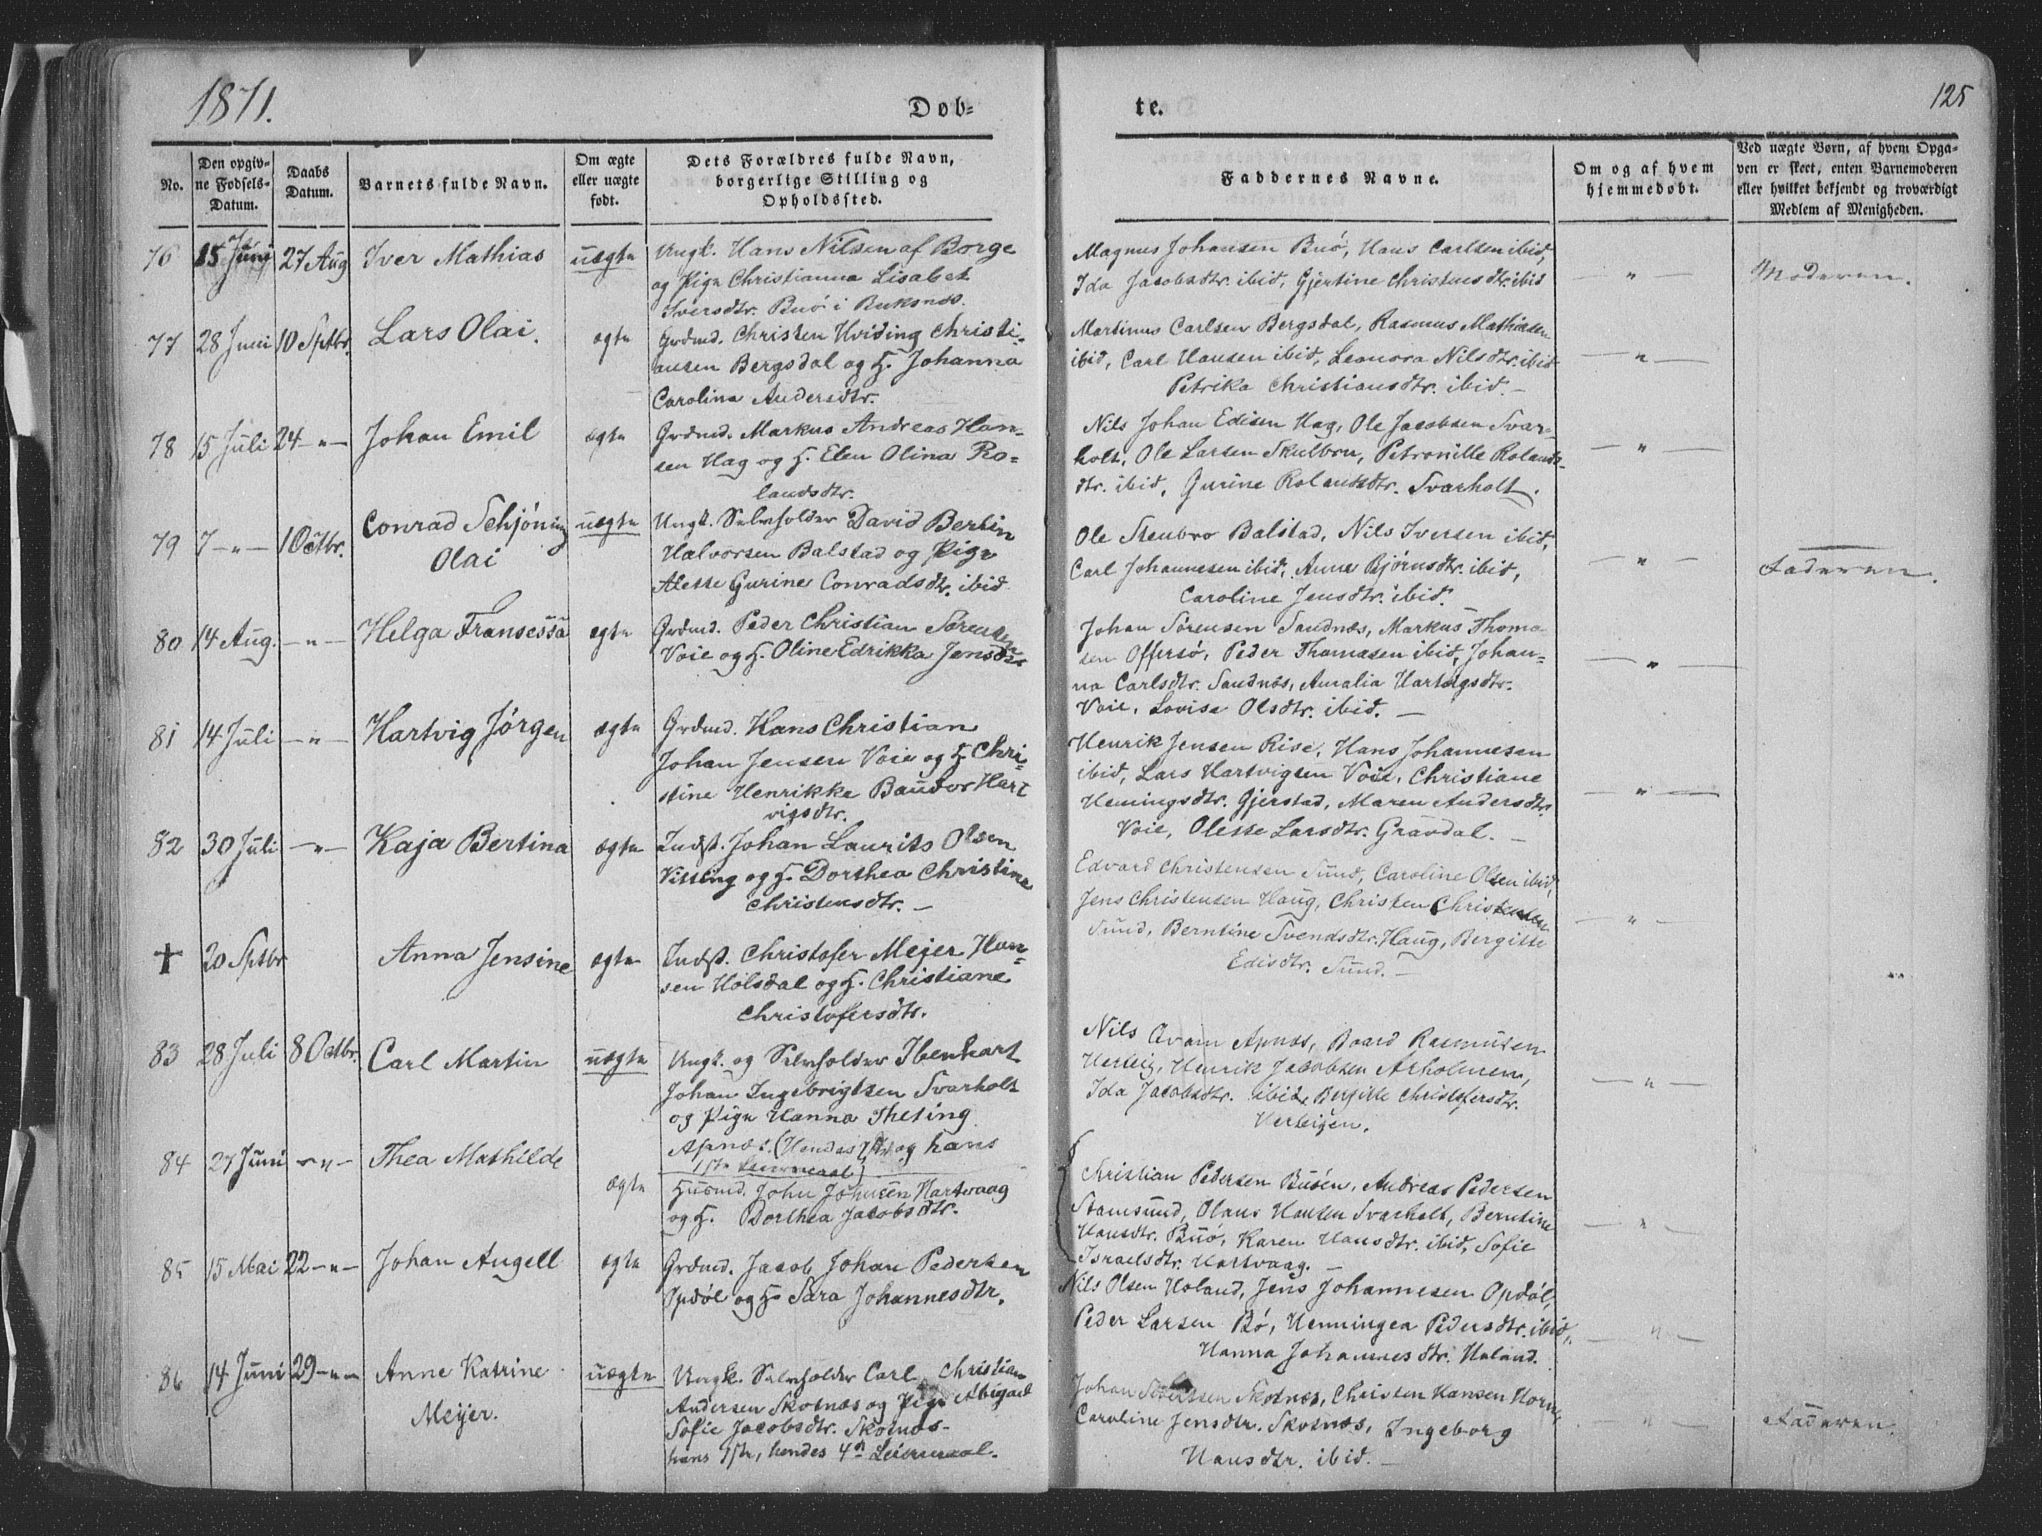 1871.
Døb-
te.
125
No.
Den opgiv-
ne Fødsels-
Datum.
Daabs
Datum.
Barnets fulde Navn.
Om ægte
eller uægte
født.
Dets Forældres fulde Navn,
borgerlige Stilling og
Opholdssted.
Faddernes Navne.
Om og af hvem
hjemmedøbt.
Ved uægte Børn, af hvem Opga-
ven er skeet, enten Barnemoderen
eller hvilket bekjendt og troværdigt
Medlem af Menigheden.
76 15 Juni 27 Aug Iver Mathias uægte
Ungk. Hans Nilsen af Borge
og Pige Christianna Lisabet
Iversdtr. Buø i Buksnæs.
Magnus Johansen Buø, Hans Carlsen ibid,
Ida Jacobsdtr. ibid, Gjertine Christensdtr. ibid
— " —
Moderen.
77 28 Juni 10 Sptbr. Lars Olai. ægte
Grdmd. Christen Hviding Christi-
ansen Bergsdal og H. Johanna
Carolina Andersdtr.
Martinus Carlsen Bergsdal, Rasmus Mathisen
ibid, Carl Hansen ibid, Leonora Nilsdtr. ibid
Petrika Christiansdtr. ibid. —
— " —
78 15 Juli 24 — " — Johan Emil ægte
Grdmd. Markus Andreas Han-
sen Hag og H. Elen Olina Ro-
landsdtr.
Nils Johan Edisen Hag, Ole Jacobsen Svar-
holt, Ole Larsen Skulbru, Petronille Rolands-
dtr. ibid, Gurine Rolandsdtr. Svarholt.
— " —
79 7 — " — 1 Octbr. Conrad Schjöning
Olai
uægte
Ungk. Selvholder David Bertin
Halvorsen Balstad og Pige
Alette Gurine Conradsdtr. ibid
Ole Steubro Balstad, Nils Iversen ibid,
Carl Johannesen ibid, Anne Bjørnsdtr. ibid,
Caroline Jensdtr. ibid.
— " —
Faderen.
80 14 Aug. — " — Helga Fransessa ægte
Grdmd. Peder Christian Sørensen
Voie og H. Oline Edrikka Jensdtr
Johan Sørensen Sandnæs, Markus Thoma-
sen Offersø, Peder Thomasen ibid, Johan-
na Carlsdtr. Sandnæs, Amalia Hartvigsdtr.
Voie, Lovise Olsdtr. ibid. —
— " —
81 14 Juli — " — Hartvig Jörgen ægte
Grdmd. Hans Christian
Johan Jensen Voie og H. Chri-
stine Henrikke Baudor Hart
vigsdtr.
Henrik Jensen Rise, Hans Johannesen
ibid, Lars Hartvigsen Voie, Christiane
Hemingsdtr. Gjerstad, Maren Andersdtr.
Voie, Olesse Larsdtr. Gravdal. —
— " —
82 30 Juli — " — Kaja Bertina ægte
Indst. Johan Laurits Olsen
Vitting og H. Dorthea Christine
Christensdtr. —
Edvard Christensen Sund, Caroline Olsen ibid,
Jens Christensen Haug, Christen Christensen
Sund, Berntine Svendsdtr. Haug, Bergitte
Edisdtr. Sund. —
— " —
✝ 20 Sptbr Anna Jensine ægte
Indst. Christofer Mejer Han-
sen Holsdal og H. Christiane
Christofersdtr.
83 28 Juli 8 Octbr. Carl Martin uægte
Ungk. og Selvholder Ibenhart
Johan Ingebrigtsen Svarholt
og Pige Hanna Theting
Apnæs. (Hendes og hans
1ste Leiermaal)
Nils Avam Apnæs, Baard Rasmusen
Herteig, Henrik Jacobsen Arholmen,
Ida Jacobsdtr. ibid, Bergitte Christofersdtr.
Herteigen.
— " —
84 27 Juni — " — Thea Mathilde ægte
Husmd. John Johnsen Hartvaag
og H. Dorthea Jacobsdtr.
Christian Pedersen Buøen, Andreas Pedersen
Stamsund, Olaus Hansen Svarholt, Berntine
Hansdtr. Buø, Karen Hansdtr. ibid, Sofie
Israelsdtr. Hartvaag. —
— " —
85 15 Mai 22 — " — Johan Angell ægte
Grdmd. Jacob Johan Pedersen
Opdøl og H. Sara Johannesdtr.
Nils Olsen Holand, Jens Johannesen Opdøl,
Peder Larsen Bø, Henningea Pedersdtr. ibid,
Hanna Johannesdtr. Holand.
— " —
86 14 Juni 29 — " — Anne Katrine
Meyer.
uægte
Ungk. Selvholder Carl Christian
Andersen Skotnæs og Pige Abigael
Sofie Jacobsdtr. Skotnæs-
hans 1ste, hendes 4de Leiermaal.
Johan Sivertsen Skotnæs, Christen Hansen Horn,
Caroline Jensdtr. Skotnæs, Ingeborg
Hansdtr. ibid. —
— " —
Faderen.